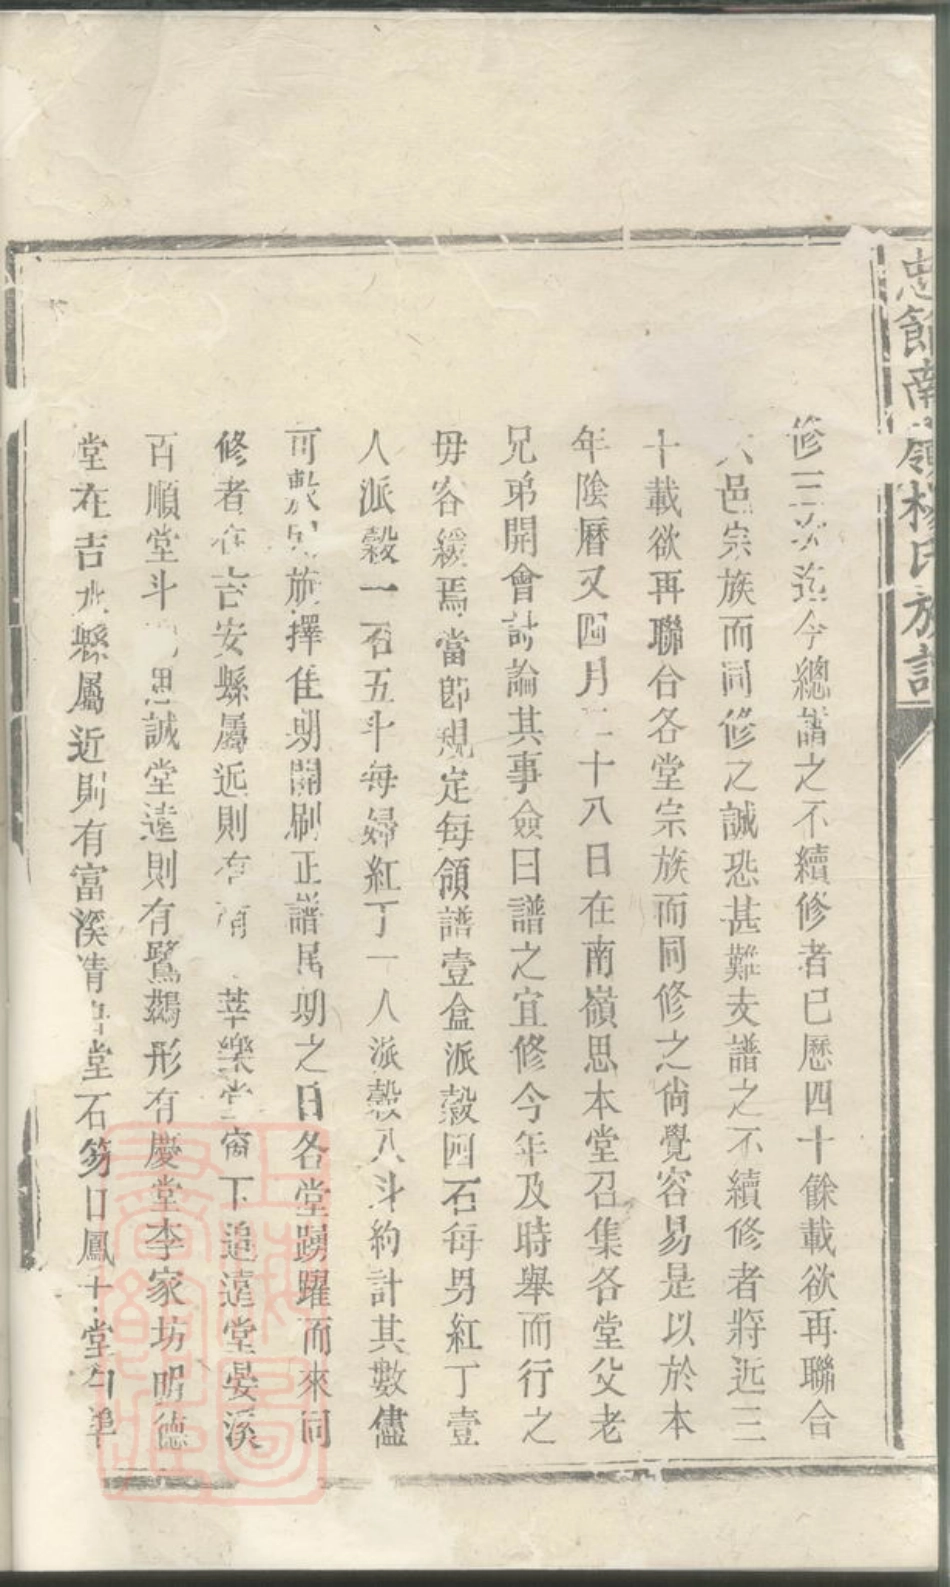 忠節南嶺楊氏族譜
修三次迄今總譜之不續修者已歷四十餘載欲再聯合
六邑宗族而同修之誠恐甚難支譜之不續修者將近三
十載欲再聯合各堂宗族而同修之倘覺容易是以於本
年陰曆又四月二十八日在南嶺思本堂召集各堂父老
兄弟開會討論其事僉曰譜之宜修今年及時舉而行之
毋容緩焉當即規定每領譜壹盒派穀四石每男紅丁壹
人派穀一石五斗每婦紅丁一人派穀八斗約計其數儘
可敷用旋擇佳期開刷正譜尾期之日各堂踴躍而來同
修者在吉安縣屬近則有莘樂堂下追遠堂晏溪
百順堂斗思誠堂遠則有鷺鷀形有慶堂李家坊明德
堂在吉水縣屬近則有富溪清堂石笏口鳳堂